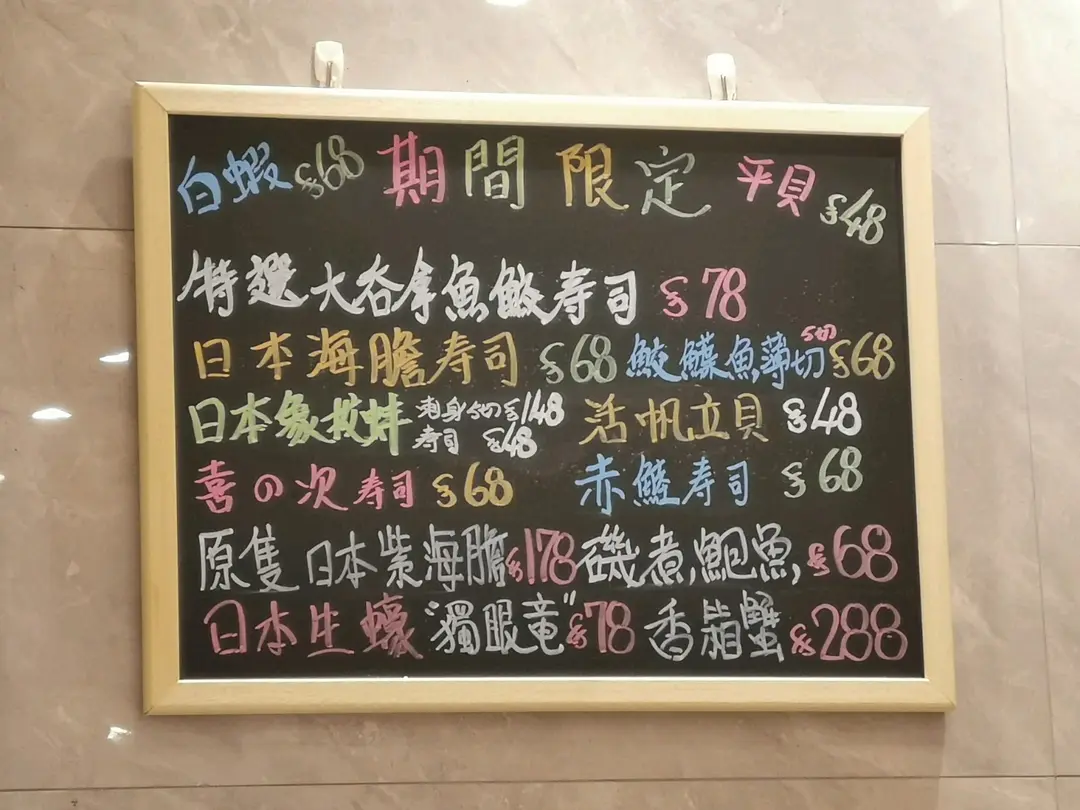 白蝦 $68 期間限定 平貝 $48
特選大吞拿魚腩寿司 $78
日本海膽寿司 $68 鮫鰈魚薄切 5切 $68
日本象拔蚌 刺身5切 $148 活帆立貝 $48
寿司 $48
喜の次寿司 $68 赤鯥寿司 $68
原隻日本紫海膽 $178 磯煮鮑魚 $68
日本生蠔"獨眼竜" $78 香箱蟹 $288